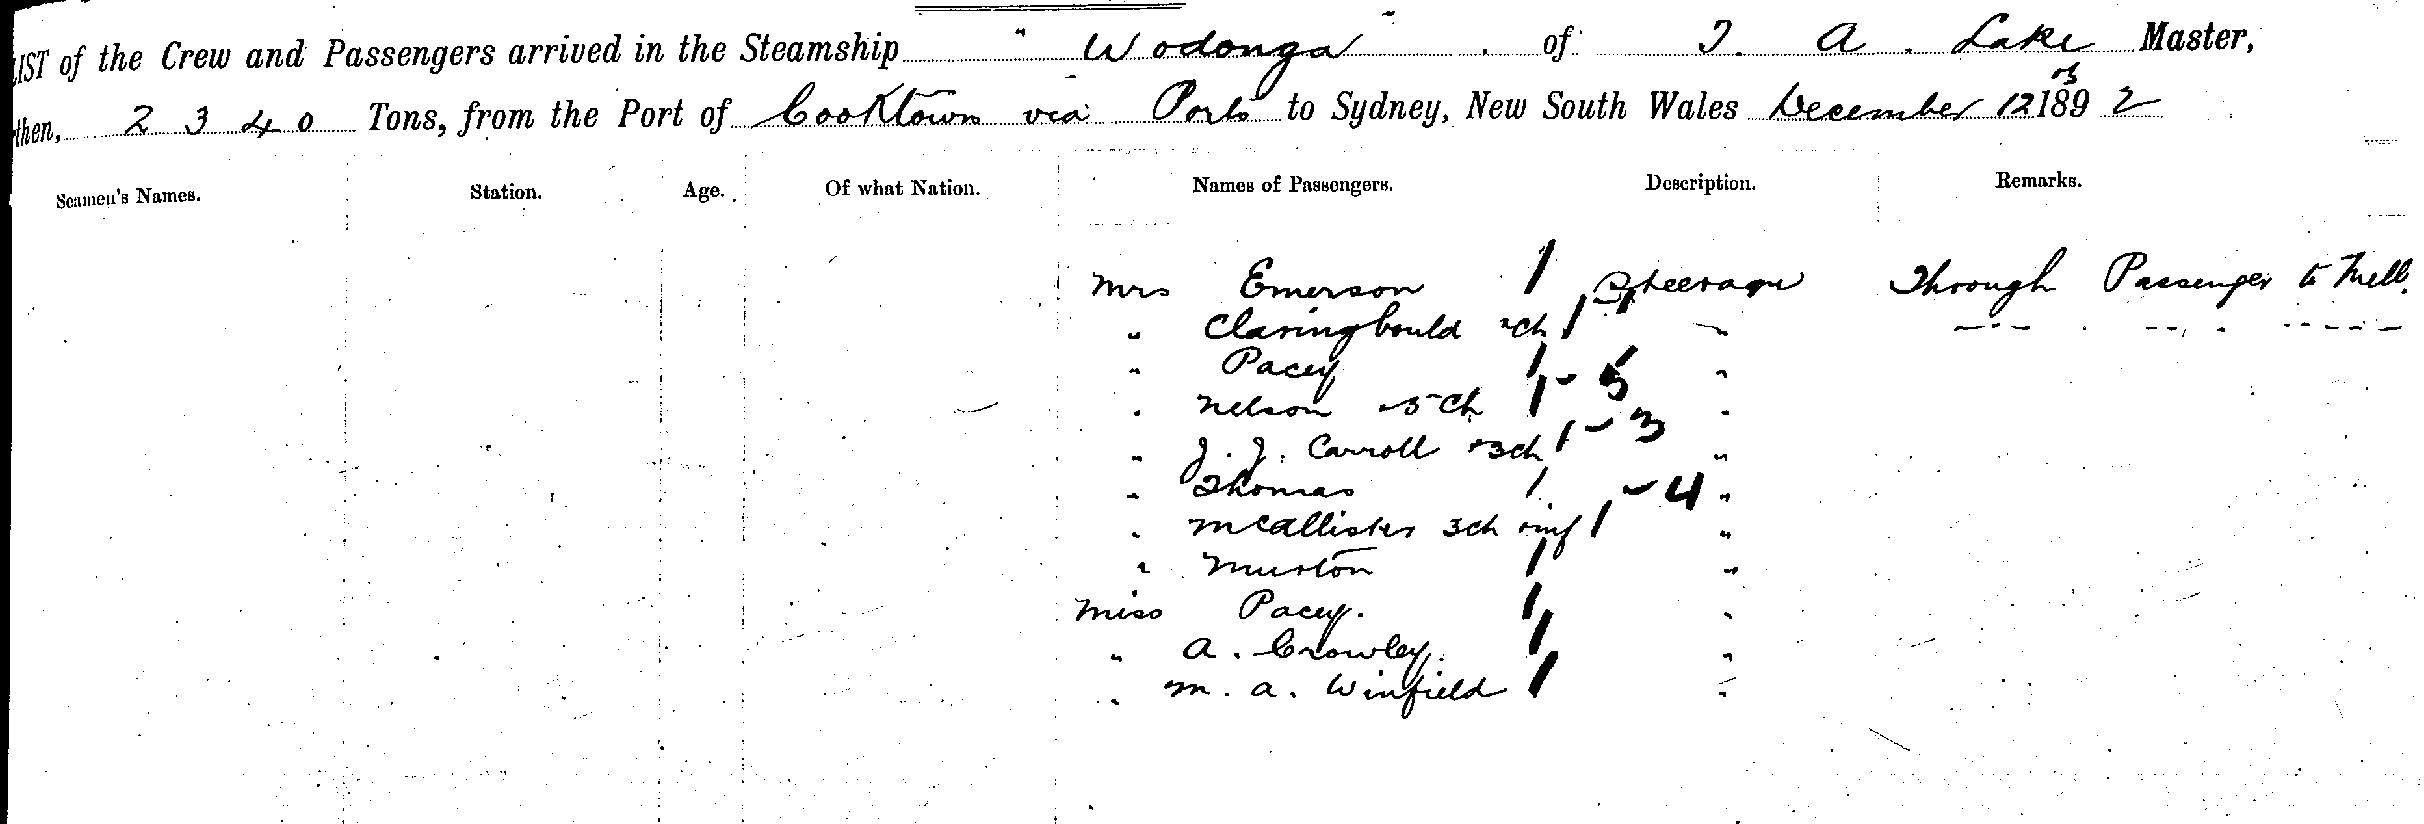 LIST of the Crew and Passengers arrived in the Steamship "Wodonga" of T. A. Lake Master,
then, 2340 Tons, from the Port of Cooktown via Ports to Sydney, New South Wales December 12th 1892
Seamen's Names. Station. Age. Of what Nation. Names of Passengers. Description. Remarks.
Mrs Emerson 1 Steerage Through Passenger to Melb.
" Claringbould ch 1 "
" Pacey 1 "
" Nelson 5 ch 1 - 5 "
" J. J. Carroll 3 ch 1 - 3 "
" Thomas 1 "
" McAllister 3 ch inf 1 - 4 "
" Murton 1 "
Miss Pacey. 1 "
" A. Crowley. 1 "
" M. A. Winfield 1 "